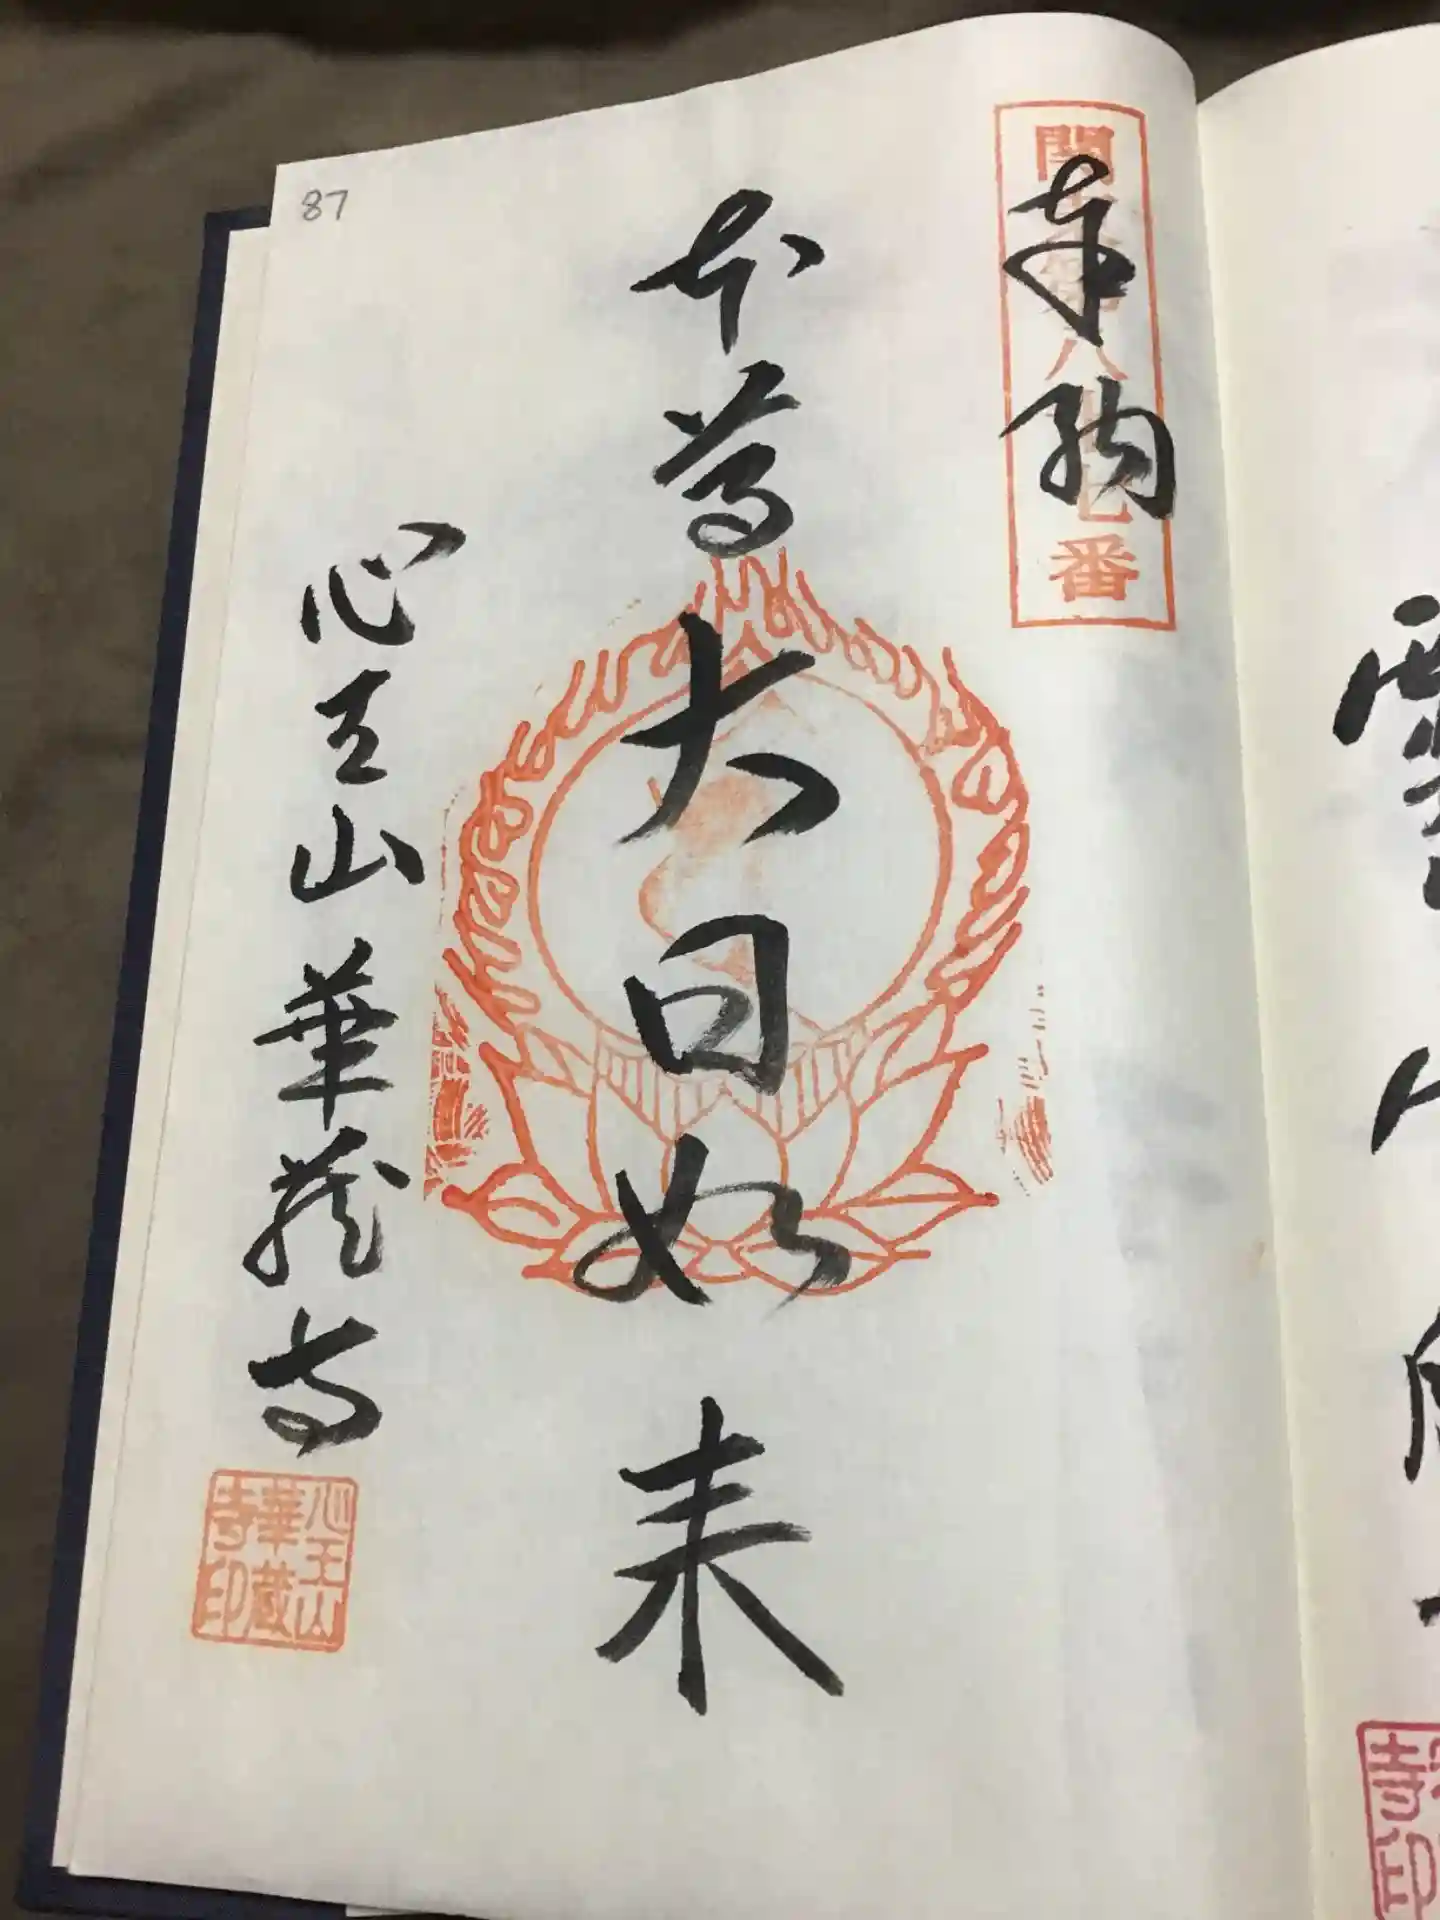 関東第八十七番
奉納
本尊大日如来
心王山華蔵寺
心王山
華蔵
寺印
87
寺印